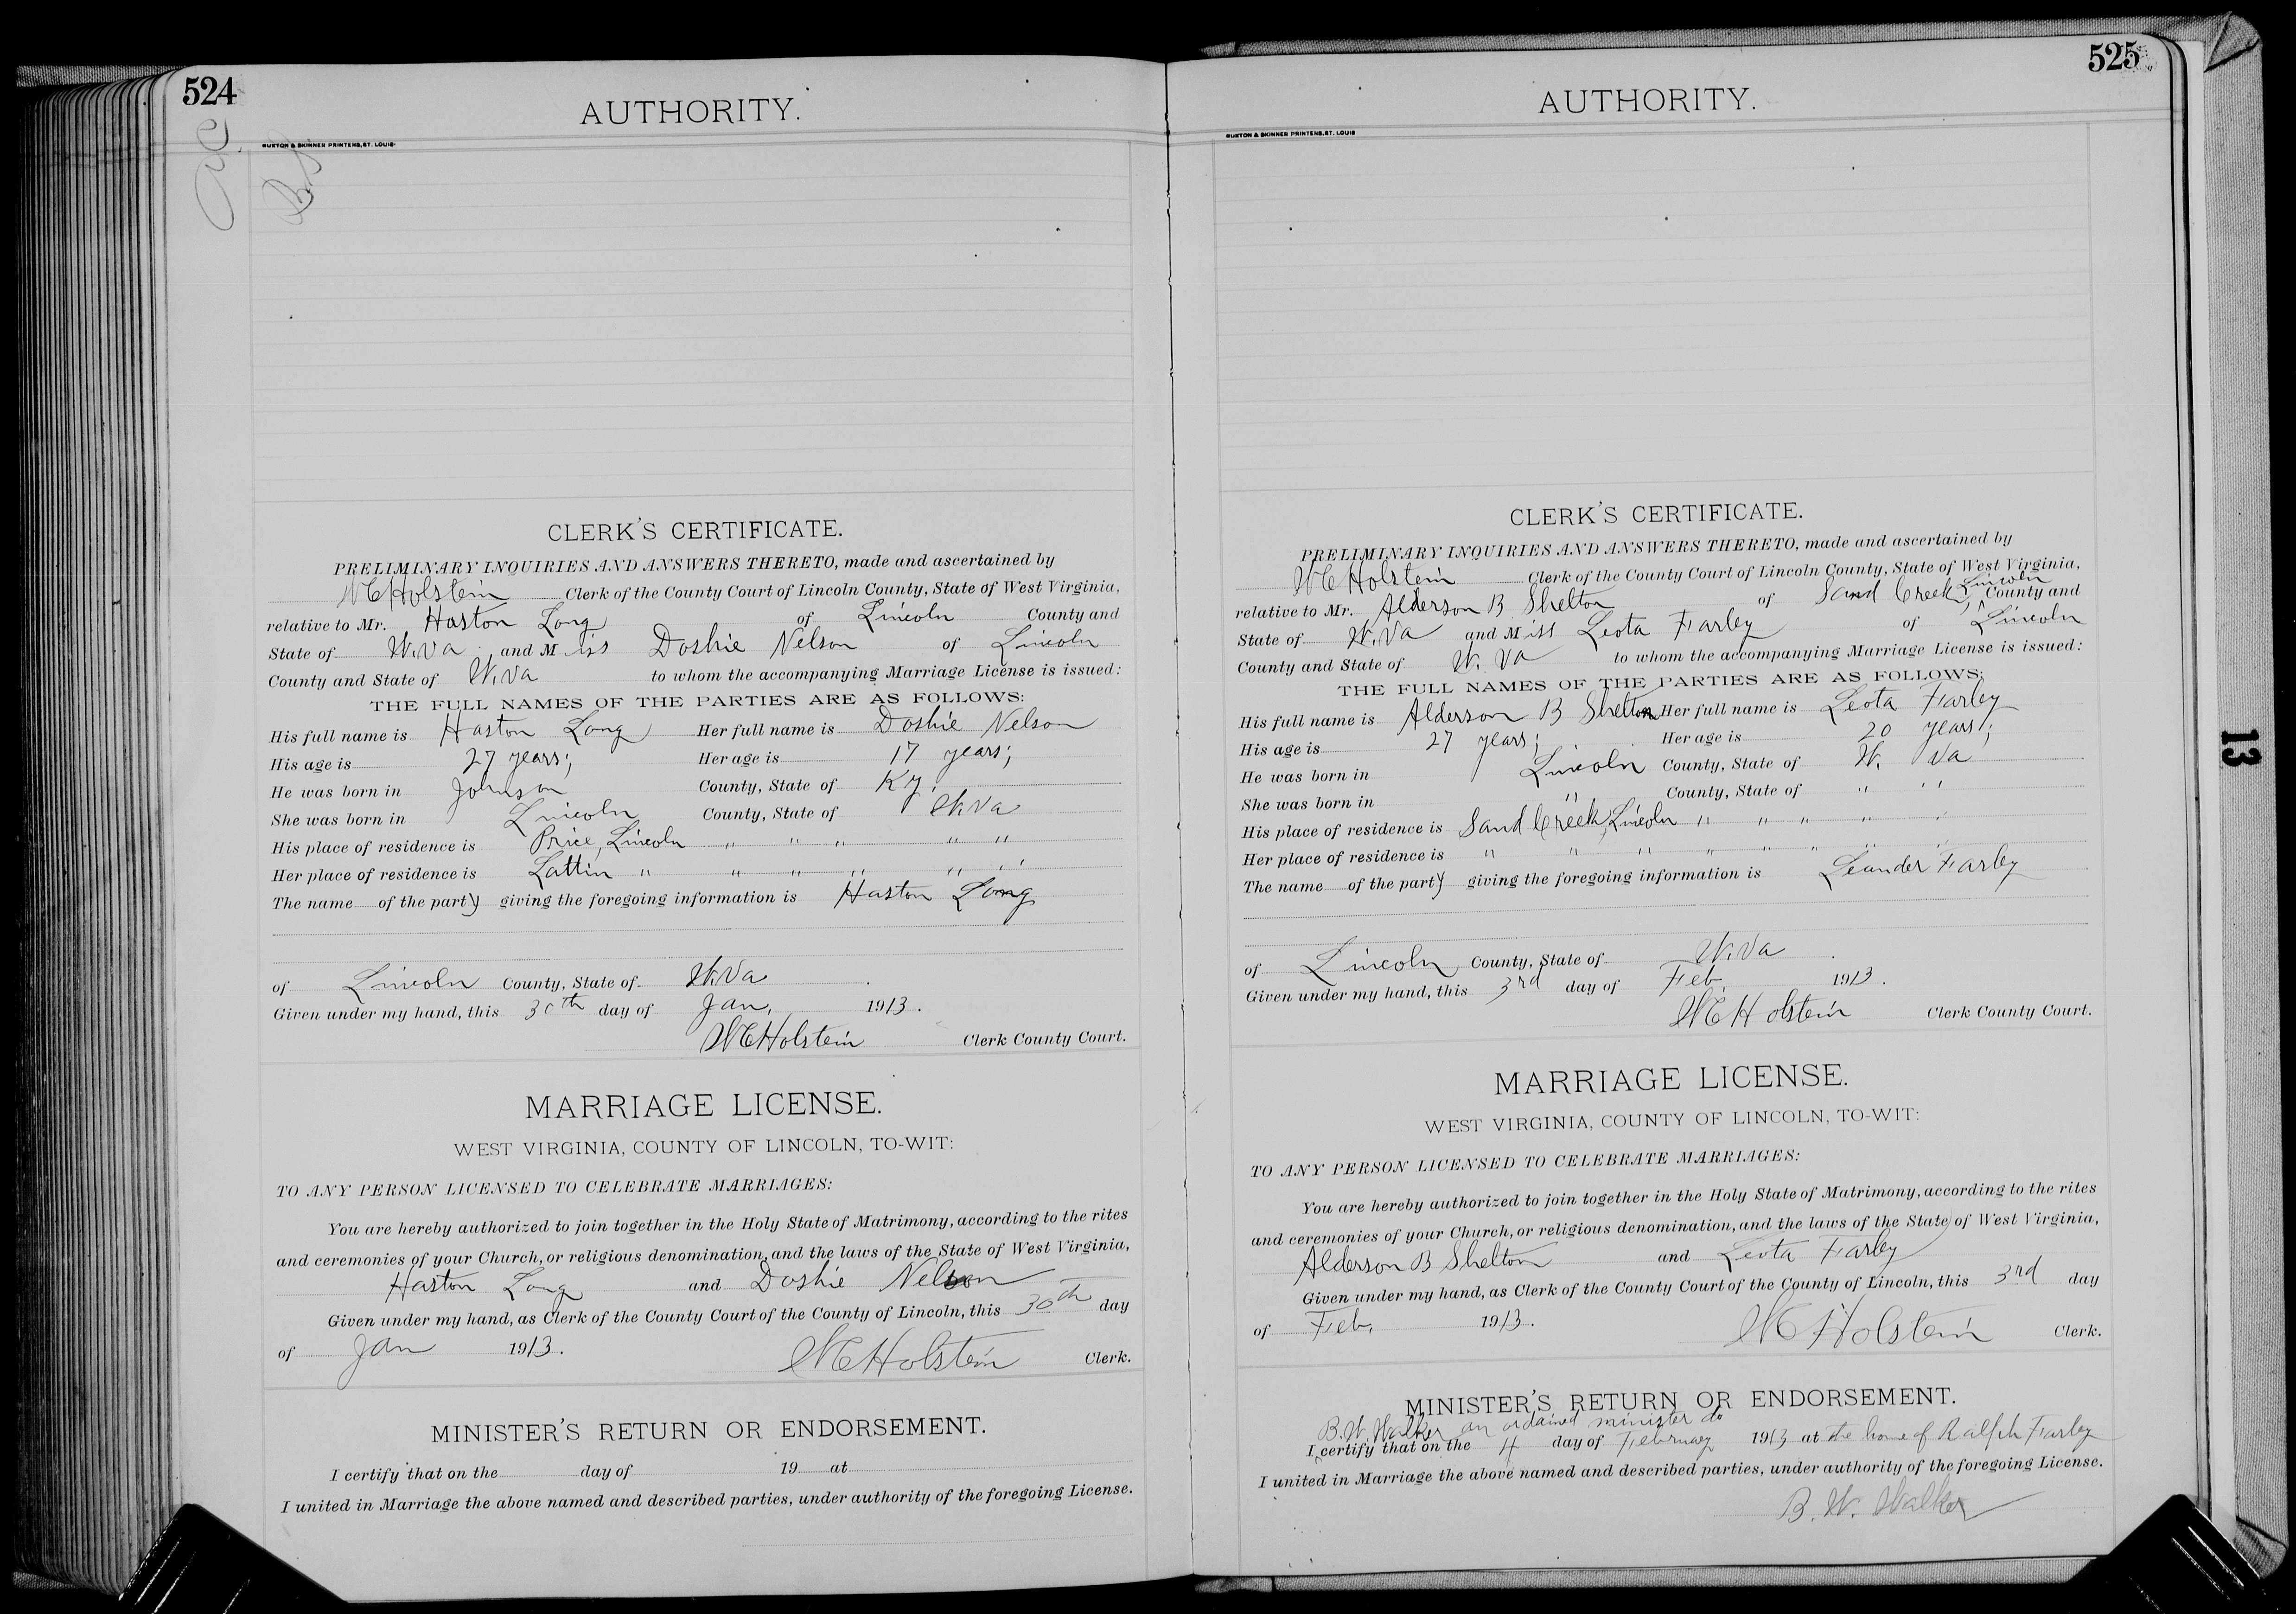 524
AUTHORITY.
BUXTON & SKINNER PRINTERS, ST. LOUIS
CLERK'S CERTIFICATE.
PRELIMINARY INQUIRIES AND ANSWERS THERETO, made and ascertained by
W E Holstein Clerk of the County Court of Lincoln County, State of West Virginia,
relative to Mr. Haston Long of Lincoln County and
State of W. Va and Miss Doshie Nelson of Lincoln
County and State of W. Va to whom the accompanying Marriage License is issued:
THE FULL NAMES OF THE PARTIES ARE AS FOLLOWS:
His full name is Haston Long Her full name is Doshie Nelson
His age is 27 years; Her age is 17 years;
He was born in Johnson County, State of Ky.
She was born in Lincoln County, State of W. Va
His place of residence is Price, Lincoln " " " " "
Her place of residence is Lattin " " " " " "
The name of the party giving the foregoing information is Haston Long
of Lincoln County, State of W. Va
Given under my hand, this 30th day of Jan, 1913.
W E Holstein Clerk County Court.
MARRIAGE LICENSE.
WEST VIRGINIA, COUNTY OF LINCOLN, TO-WIT:
TO ANY PERSON LICENSED TO CELEBRATE MARRIAGES:
You are hereby authorized to join together in the Holy State of Matrimony, according to the rites
and ceremonies of your Church, or religious denomination, and the laws of the State of West Virginia,
Haston Long and Doshie Nelson
Given under my hand, as Clerk of the County Court of the County of Lincoln, this 30th day
of Jan 1913. W E Holstein Clerk.
MINISTER'S RETURN OR ENDORSEMENT.
I certify that on the day of 19 at
I united in Marriage the above named and described parties, under authority of the foregoing License.
525
AUTHORITY.
BUXTON & SKINNER PRINTERS, ST. LOUIS
CLERK'S CERTIFICATE.
PRELIMINARY INQUIRIES AND ANSWERS THERETO, made and ascertained by
W E Holstein Clerk of the County Court of Lincoln County, State of West Virginia,
relative to Mr. Alderson B Shelton of Sand Creek, Lincoln County and
State of W. Va and Miss Leota Farley of Lincoln
County and State of W. Va to whom the accompanying Marriage License is issued:
THE FULL NAMES OF THE PARTIES ARE AS FOLLOWS:
His full name is Alderson B Shelton Her full name is Leota Farley
His age is 27 years; Her age is 20 years;
He was born in Lincoln County, State of W. Va
She was born in " County, State of " "
His place of residence is Sand Creek, Lincoln " " " " "
Her place of residence is " " " " " " " "
The name of the party giving the foregoing information is Leander Farley
of Lincoln County, State of W. Va
Given under my hand, this 3rd day of Feb. 1913.
W E Holstein Clerk County Court.
MARRIAGE LICENSE.
WEST VIRGINIA, COUNTY OF LINCOLN, TO-WIT:
TO ANY PERSON LICENSED TO CELEBRATE MARRIAGES:
You are hereby authorized to join together in the Holy State of Matrimony, according to the rites
and ceremonies of your Church, or religious denomination, and the laws of the State of West Virginia,
Alderson B Shelton and Leota Farley
Given under my hand, as Clerk of the County Court of the County of Lincoln, this 3rd day
of Feb. 1913. W E Holstein Clerk.
MINISTER'S RETURN OR ENDORSEMENT.
B. W. Walker an ordained minister do
I certify that on the 4 day of February 1913 at the home of Ralph Farley
I united in Marriage the above named and described parties, under authority of the foregoing License.
B. W. Walker
13